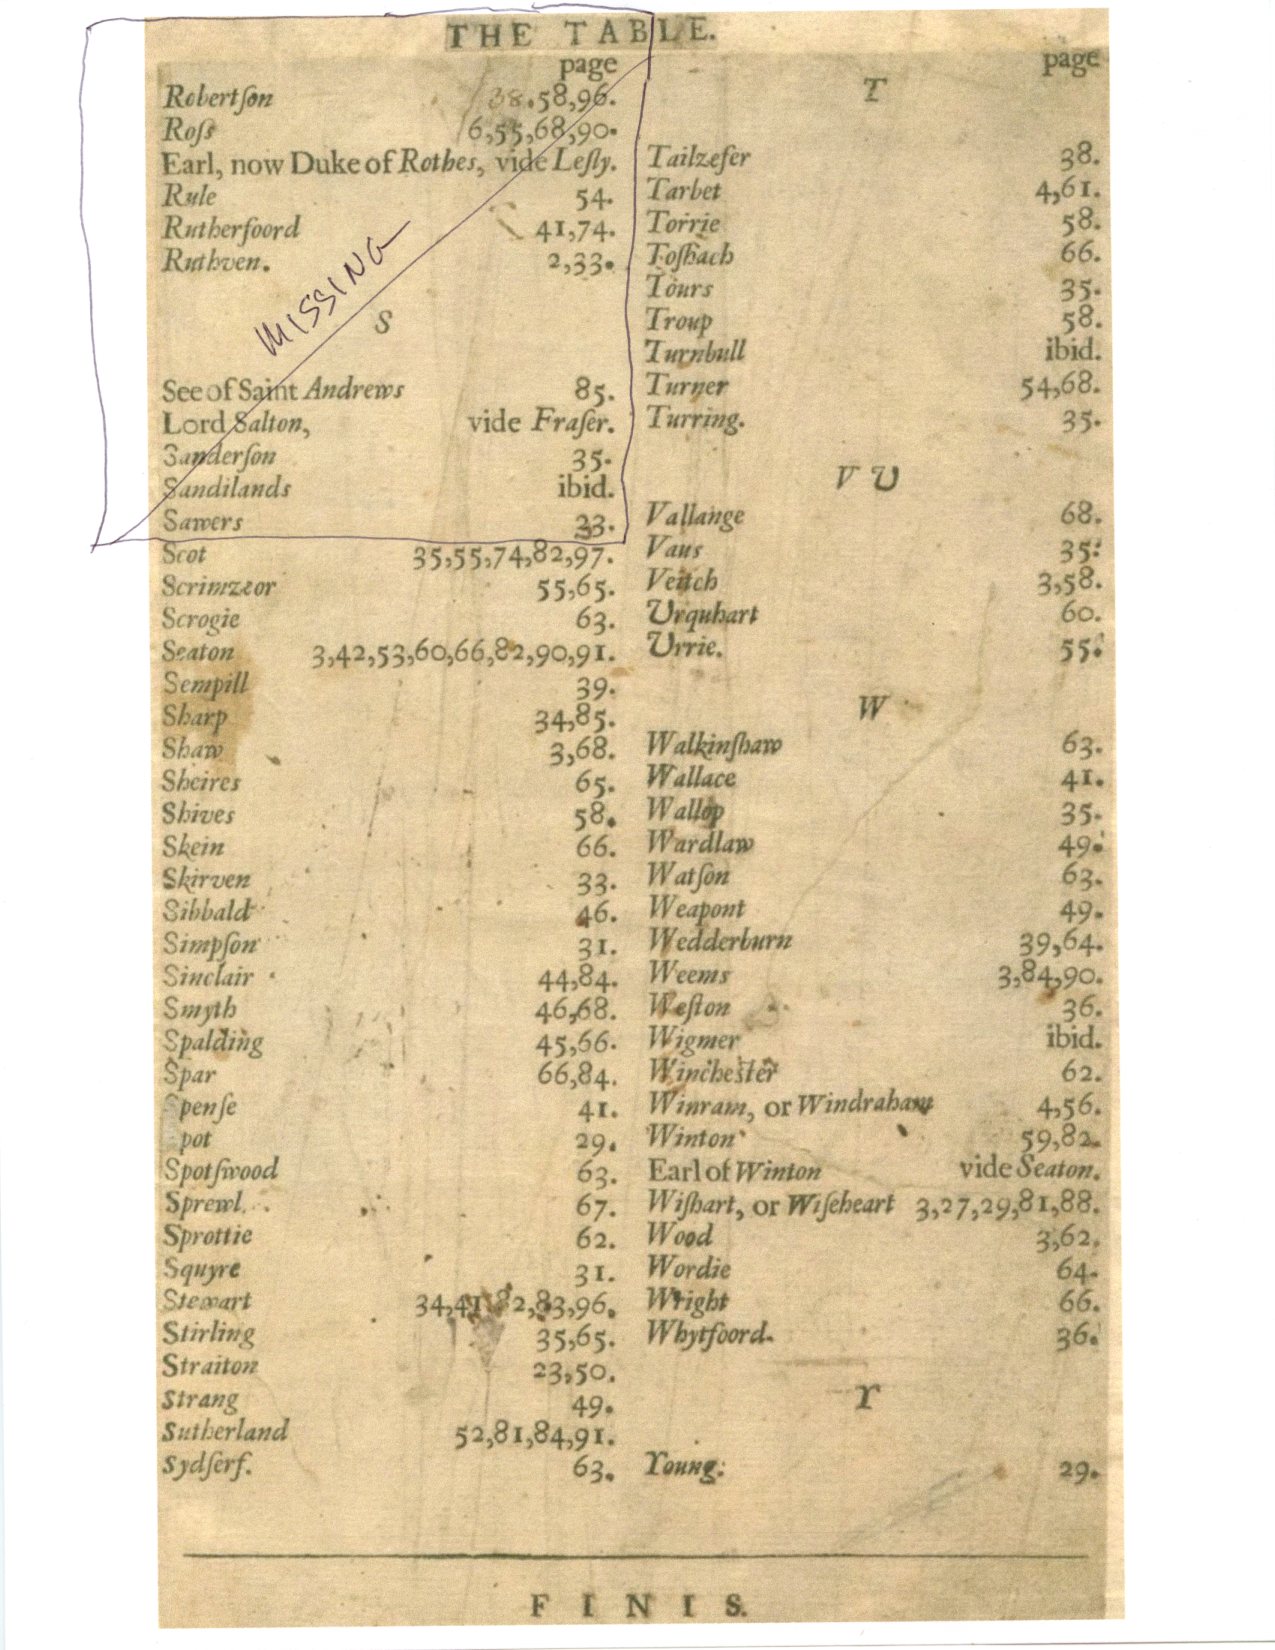 THE TABLE.
page
Robertſon 38.58,96.
Roſs 6,55,68,90.
Earl, now Duke of Rothes, vide Leſly.
Rule 54.
Rutherfoord 41,74.
Ruthven. 2,33.
MISSING
S
See of Saint Andrews 85.
Lord Salton, vide Fraſer.
Sanderſon 35.
Sandilands ibid.
Sawers 23.
Scot 35,55,74,82,97.
Scrimzeor 55,65.
Scrogie 63.
Seaton 3,42,53,60,66,82,90,91.
Sempill 39.
Sharp 34,85.
Shaw 3,68.
Sheires 65.
Shives 58.
Skein 66.
Skirven 33.
Sibbald 46.
Simpſon 31.
Sinclair 44,84.
Smyth 46,68.
Spalding 45,66.
Spar 66,84.
Spenſe 41.
Spot 29.
Spotſwood 63.
Sprewl. 67.
Sprottie 62.
Squyre 31.
Stewart 34,41,82,83,96.
Stirling 35,65.
Straiton 23,50.
Strang 49.
Sutherland 52,81,84,91.
Sydſerf. 63.
page
T
Tailzefer 38.
Tarbet 4,61.
Torrie 58.
Toſhach 66.
Tours 35.
Troup 58.
Turnbull ibid.
Turner 54,68.
Turring. 35.
V U
Vallange 68.
Vaus 35.
Veitch 3,58.
Urquhart 60.
Urrie. 55.
W
Walkinſhaw 63.
Wallace 41.
Wallop 35.
Wardlaw 49.
Watſon 63.
Weapont 49.
Wedderburn 39,64.
Weems 3,84,90.
Weſton 36.
Wigmer ibid.
Wincheſter 62.
Winram, or Windraham 4,56.
Winton 59,82.
Earl of Winton vide Seaton.
Wiſhart, or Wiſeheart 3,27,29,81,88.
Wood 3,62.
Wordie 64.
Wright 66.
Whytfoord. 36.
Y
Young. 29.
FINIS.